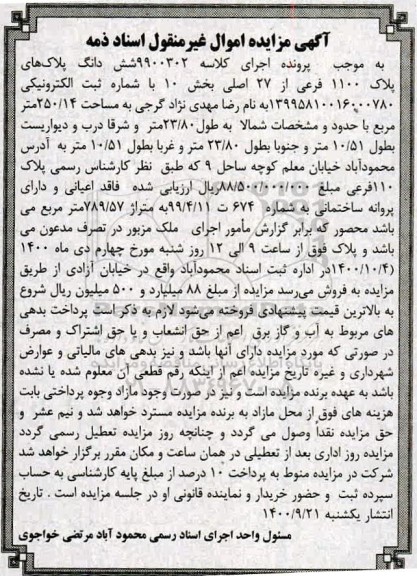 آگهی مزایده اموال غیرمنقول اسناد ذمه
به موجب پرونده اجرای کلاسه ۹۹۰۰۳۰۲شش دانگ پلاک‌های
پلاک ۱۱۰۰ فرعی از ۲۷ اصلی بخش ۱۰ با شماره ثبت الکترونیکی
۱۳۹۹۵۸۱۰۰۱۶۰۰۰۷۸۰به نام رضا مهدی نژاد گرجی به مساحت ۲۵۰/۱۴متر
مربع با حدود و مشخصات شمالا به طول۲۳/۸۰متر و شرقا درب و دیواریست
بطول ۱۰/۵۱ متر و جنوبا بطول ۲۳/۸۰ متر و غربا بطول ۱۰/۵۱ متر به آدرس
محمودآباد خیابان معلم کوچه ساحل ۹ که طبق نظر کارشناس رسمی پلاک
۱۱۰فرعی مبلغ ۸۸/۵۰۰/۰۰۰/۰۰۰ریال ارزیابی شده فاقد اعیانی و دارای
پروانه ساختمانی به شماره ۶۷۴ ت ۹۹/۴/۱۱به متراژ ۷۸۹/۵۷متر مربع می
باشد محصور که برابر گزارش مأمور اجرای ملک مزبور در تصرف مدعون می
باشد و پلاک فوق از ساعت ۹ الی ۱۲ روز شنبه مورخ چهارم دی ماه ۱۴۰۰
(۱۴۰۰/۱۰/۴در اداره ثبت اسناد محمودآباد واقع در خیابان آزادی از طریق
مزایده به فروش می‌رسد مزایده از مبلغ ۸۸ میلیارد و ۵۰۰ میلیون ریال شروع
به بالاترین قیمت پیشنهادی فروخته می‌شود لازم به ذکر است پرداخت بدهی
های مربوط به آب و گاز برق اعم از حق انشعاب و یا حق اشتراک و مصرف
در صورتی که مورد مزایده دارای آنها باشد و نیز بدهی های مالیاتی و عوارض
شهرداری و غیره تاریخ مزایده اعم از اینکه رقم قطعی آن معلوم شده یا نشده
باشد به عهده برنده مزایده است و نیز در صورت وجود مازاد وجوه پرداختی بابت
هزینه های فوق از محل مازاد به برنده مزایده مسترد خواهد شد و نیم عشر و
حق مزایده نقدا وصول می گردد و چنانچه روز مزایده تعطیل رسمی گردد
مزایده روز اداری بعد از تعطیلی در همان ساعت و مکان مقرر برگزار خواهد شد
شرکت در مزایده منوط به پرداخت ۱۰ درصد از مبلغ پایه کارشناسی به حساب
سپرده ثبت و حضور خریدار و نماینده قانونی او در جلسه مزایده است . تاریخ
انتشار یکشنبه ۱۴۰۰/۹/۲۱
مسئول واحد اجرای اسناد رسمی محمود آباد مرتضی خواجوی